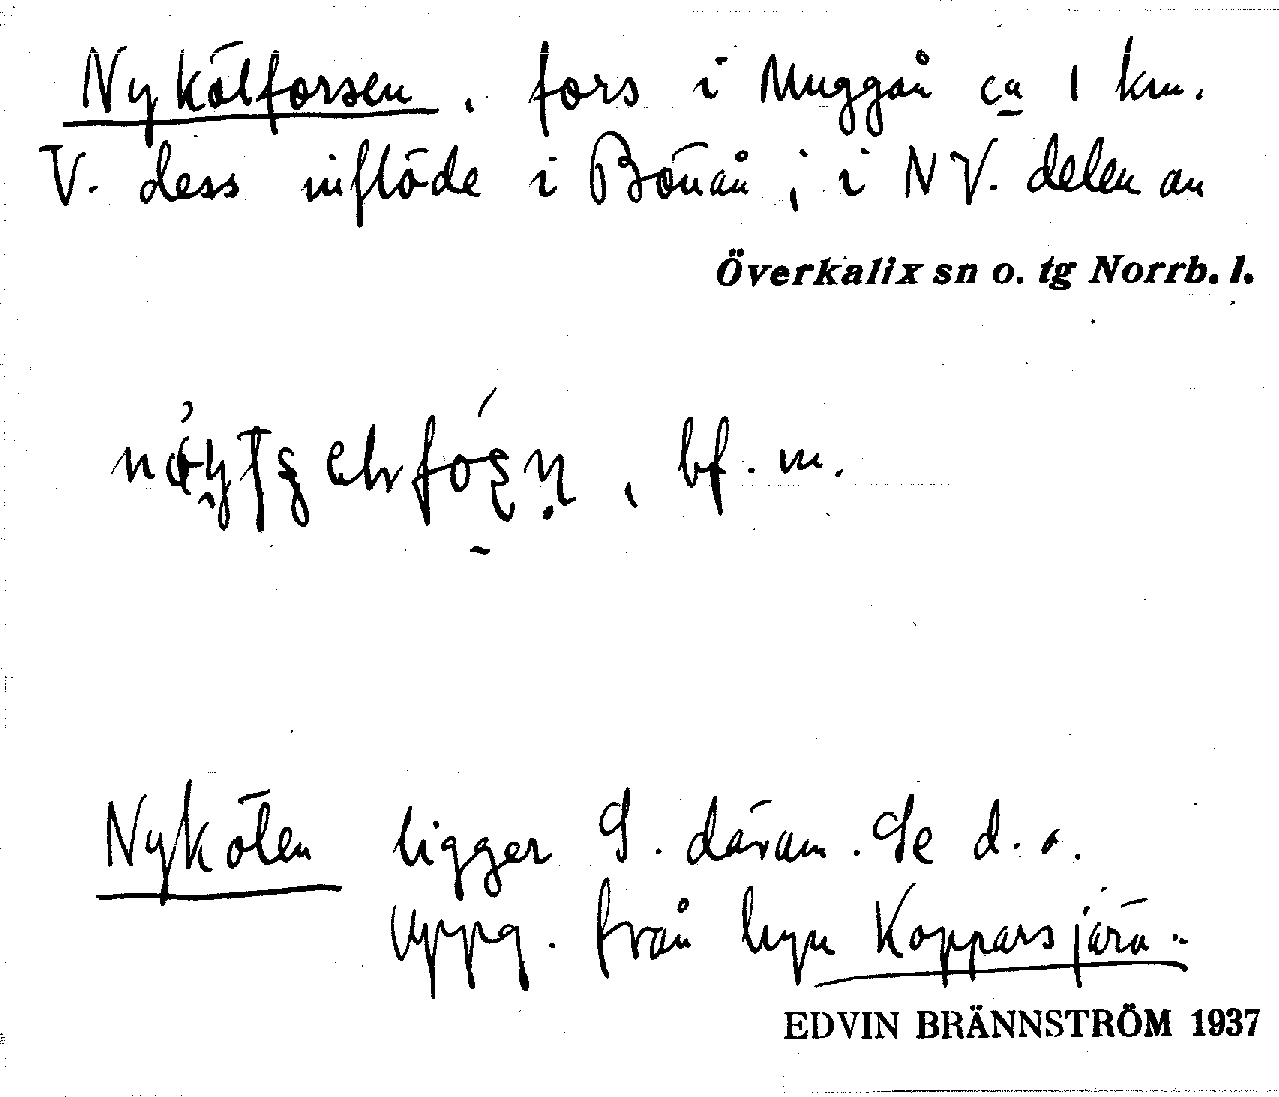 Nykölforsen, fors i Muggån ca 1 km.
V. dess inflöde i Bönån, i NV. delen av
Överkalix sn o. tg Norrb. l.
bf. m.
Nykölen ligger S. därom. Se d. o.
Uppg. från byn Kopparsjärv.
EDVIN BRÄNNSTRÖM 1937